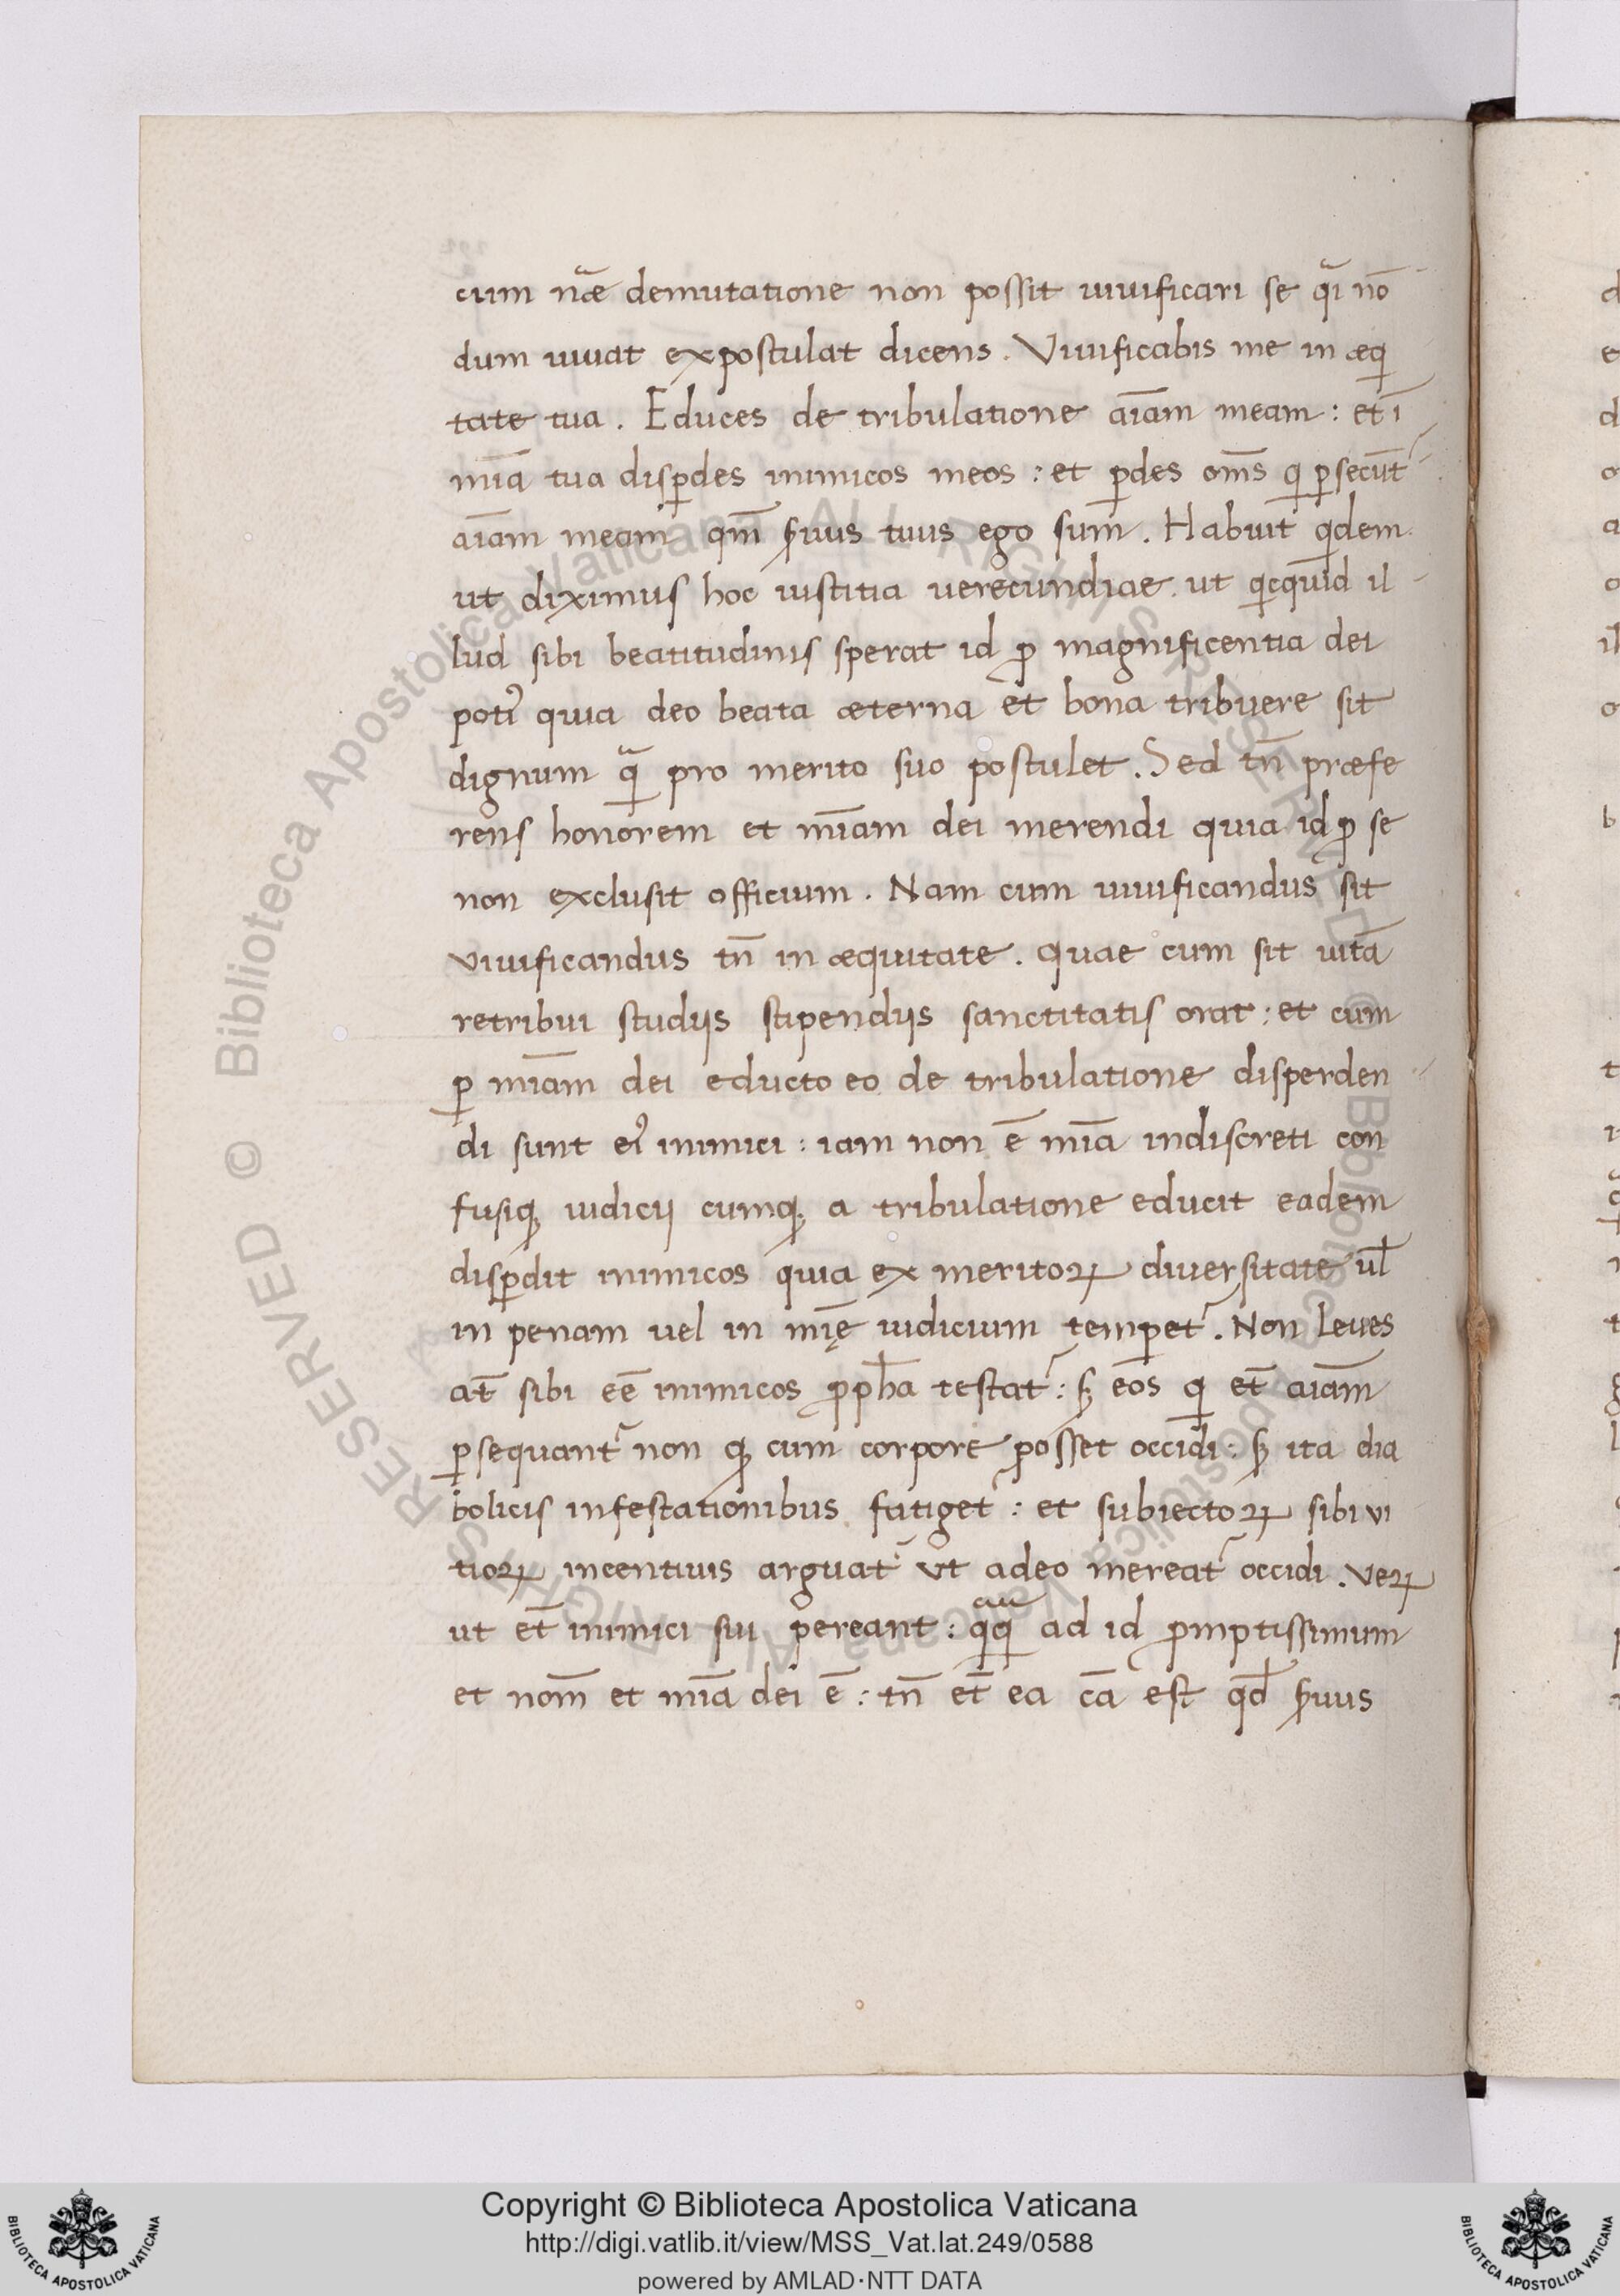 cum nr̄ae demutatione non possit uiuificari se qͣi nō
dum uiuat expostulat dicens. Viuificabis me in æqͥ
tate tua. Educes de tribulatione aīam meam: et ī
mīa tua disꝑdes inimicos meos: et ꝑdes om̄s qͥ ꝑsecūt᷑
aīam meam qm̄ ẜuus tuus ego sum. Habuit qͥdem
ut diximus hoc iustitia uerecundiae. ut qͥcquid il
lud sibi beatitudinis sperat id ꝓ magnificentia dei
potiꝰ quia deo beata æterna et bona tribuere sit
dignum qͣ pro merito suo postulet. Sed tn̄ præfe
rens honorem et mīam dei merendi quia id ꝓ se
non exclusit officium. Nam cum uiuificandus sit
viuificandus tn̄ in æquitate. Quae cum sit uitā
retribui studijs stipendijs sanctitatis orat: et cum
ꝑ mīam dei educto eo de tribulatione disperden
di sunt eiꝰ inimici: iam non ē mīa indiscreti con
fusiqꝫ iudicij cumqꝫ a tribulatione educit eadem
disꝑdit inimicos quia ex meritoꝝ diuersitate ul̄
in penam uel in mīę iudicium temꝑet᷑. Non leues
at̄ sibi eē inimicos ꝓph̄a testat᷑: sꝫ eos qͥ et̄ aīam
ꝑsequant᷑ non qꝫ cum corpore posset occidi: sꝫ ita dia
bolicis infestationibus fatiget᷑: et subiectoꝝ sibi vi
tioꝝ incentiuis arguat᷑ ut adeo mereat᷑ occidi. veꝝ
ut et̄ inimici sui pereant: qͣqͣ ad id ꝓmptissimum
et nom̄ et mīa dei ē: tn̄ et̄ ea cā est qd̄ ẜuus
Copyright © Biblioteca Apostolica Vaticana
http://digi.vatlib.it/view/MSS_Vat.lat.249/0588
powered by AMLAD·NTT DATA
BIBLIOTECA APOSTOLICA VATICANA
BIBLIOTECA APOSTOLICA VATICANA